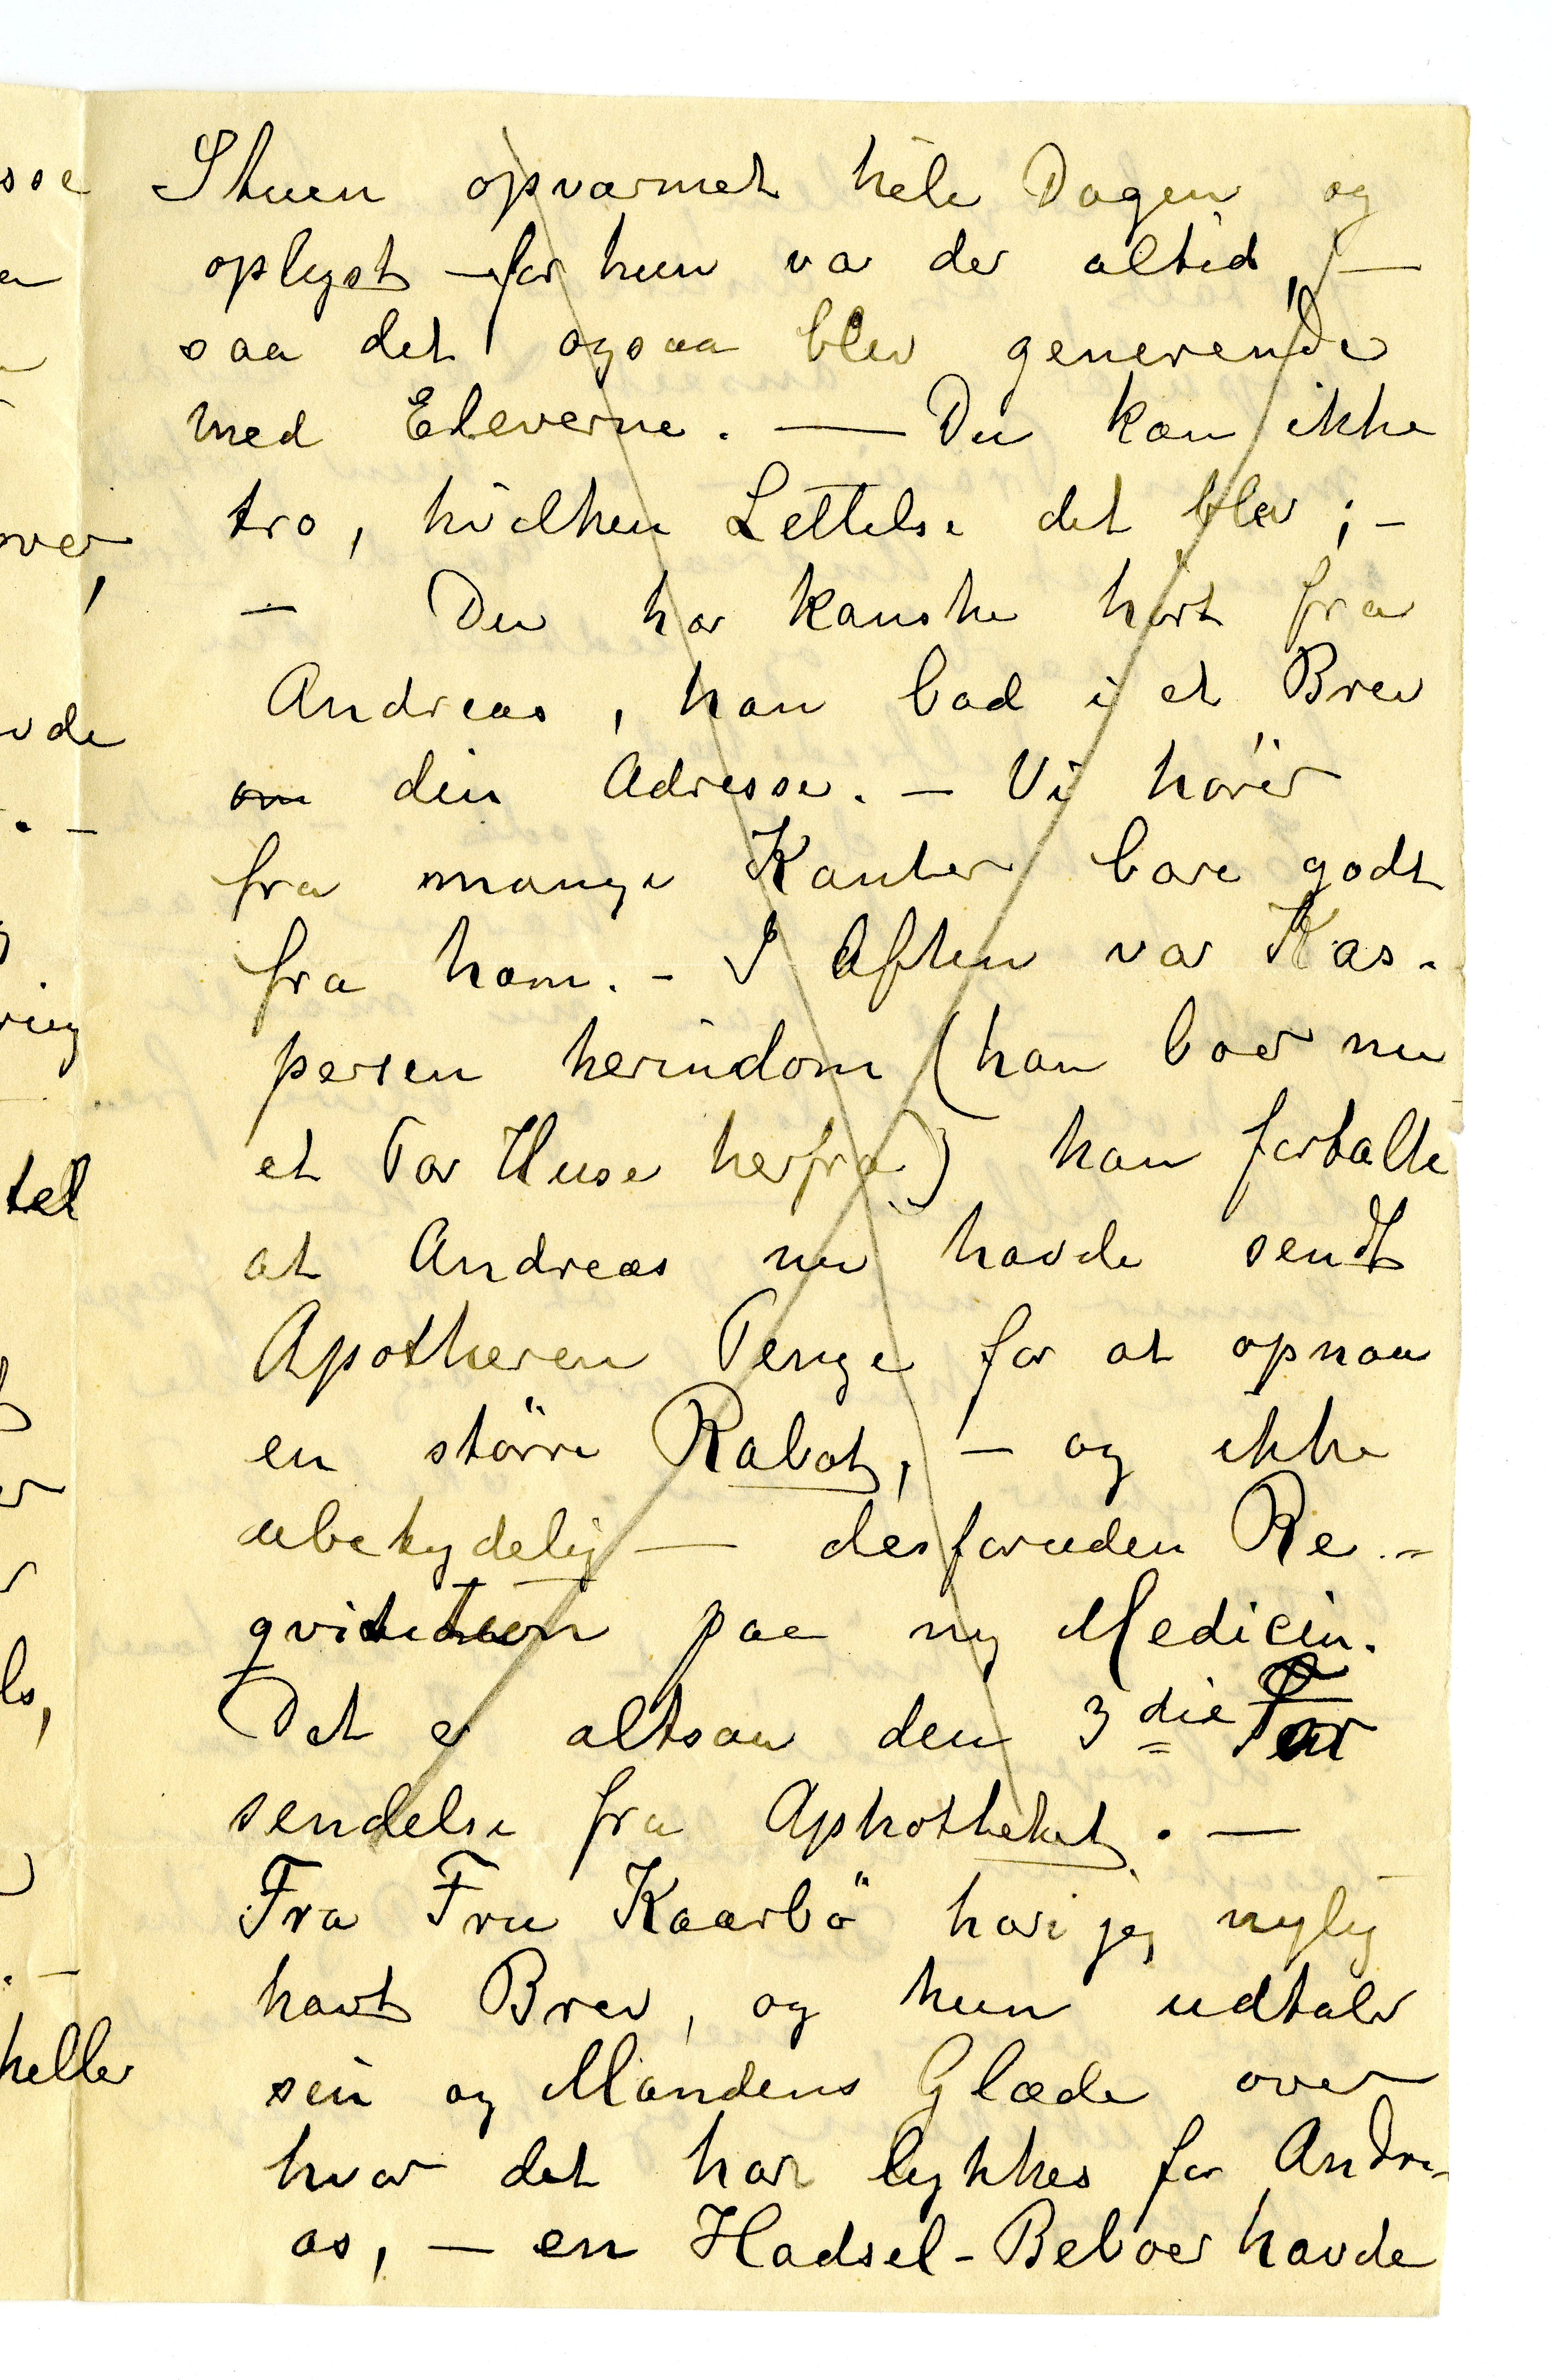 Stuen opvarmet hele Dagen og
oplyst – for hun va der altid, –
saa det ogsaa blev generende
med Eleverne. — Du kan ikke
tro, hvilken Lettelse det blev; –
– Du har kanske hørt fra
Andreas, han bad i et Brev
om din Adresse. – Vi hører
fra mange Kanter bare godt
fra ham. – I Aften var Kas-
persen herindom (han boer nu
et Par Huse herfra) han fortalte
at Andreas nu havde sendt
Apothekeren Penge for at opnaa
en större Rabat, – og ikke
ubetydelig — desforuden Re-
qvisition paa ny Medicin.
Det er altsaa den 3die For
sendelse fra Aphotheket. —
Fra Fru Kaarbö har jeg nylig
havt Brev, og hun udtaler
sin og Mandens Glæde over
hvor det har lykkes for Andre-
as, – en Hadsel-Beboer havde